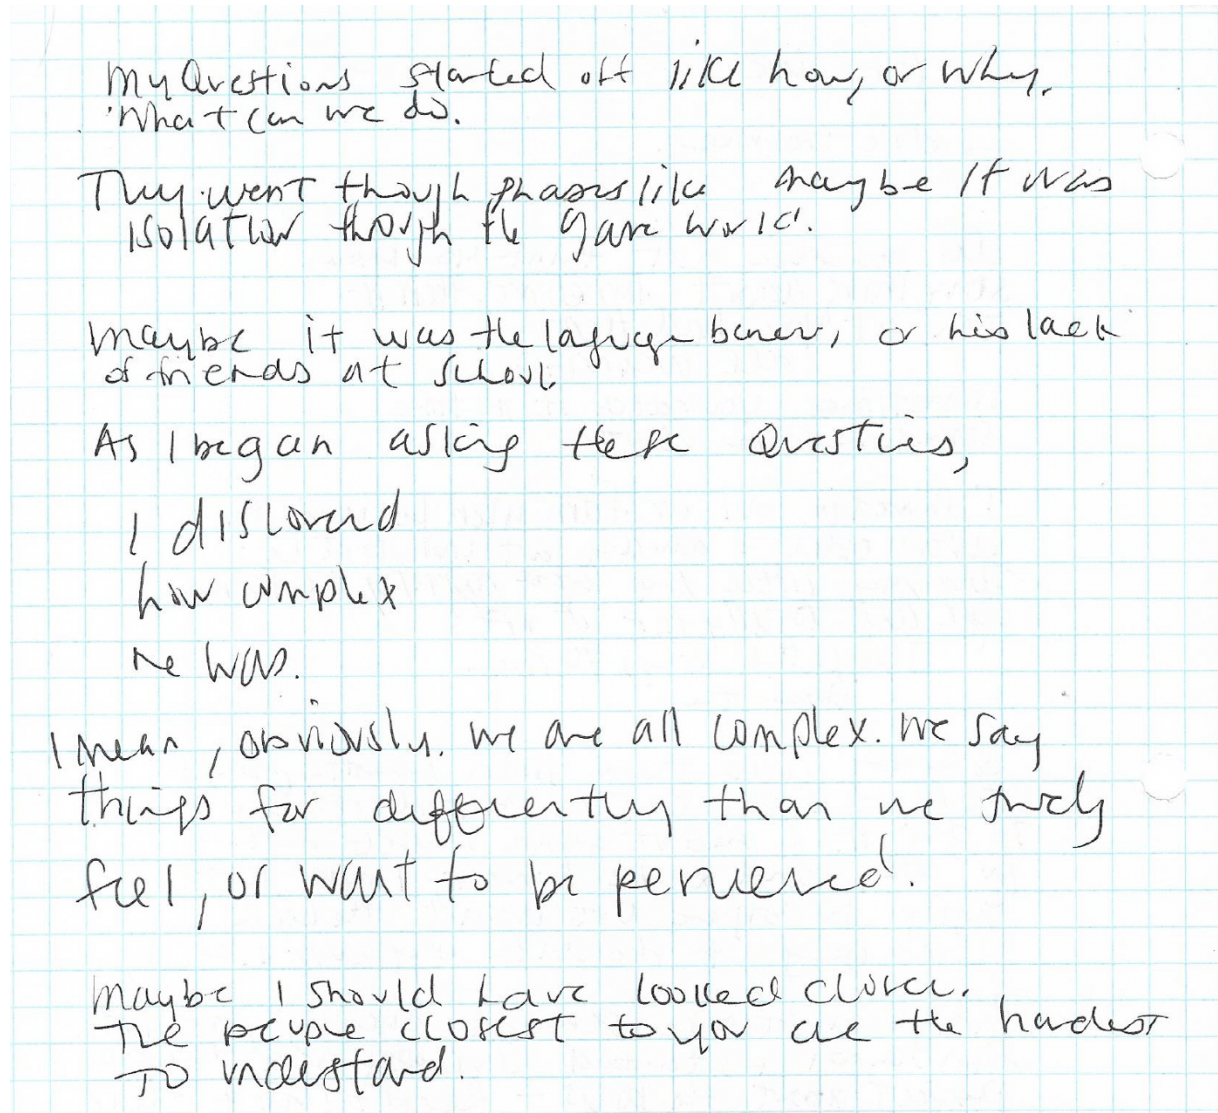 My Questions started off like how, or why.
What can we do.
They went though phases like maybe it was
isolation though the game world.
maybe it was the laguage barrier, or his lack
of friends at school.
As I began asking these Questions,
I discovered
how complex
he was.
I mean, obviously. we are all complex. we say
things far differently than we truely
feel, or want to be percieved.
maybe I should have looked closer.
The people closest to you are the hardest
To understand.